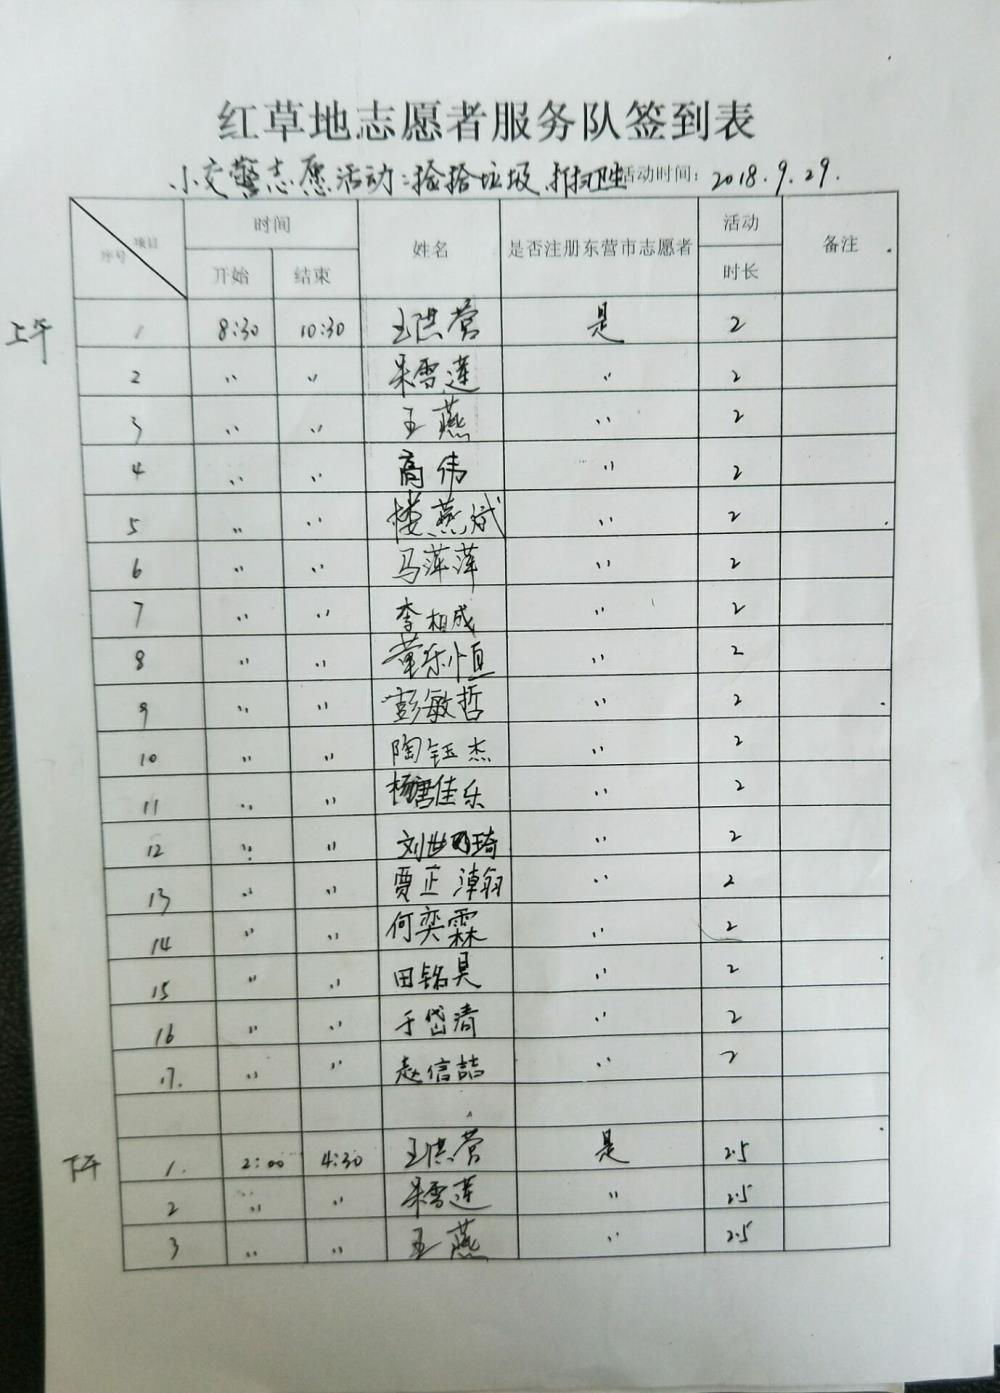 红草地志愿者服务队签到表
小交警志愿活动:捡拾垃圾,打扫卫生 活动时间: 2018.9.29.
项目 序号 时间 姓名 是否注册东营市志愿者 活动 备注
开始 结束 时长
上午 1 8:30 10:30 王洪营 是 2
2 〃 〃 朱雪莲 〃 2
3 〃 〃 王燕 〃 2
4 〃 〃 高伟 〃 2
5 〃 〃 楼燕斌 〃 2
6 〃 〃 马萍萍 〃 2
7 〃 〃 李相成 〃 2
8 〃 〃 董乐恒 〃 2
9 〃 〃 彭敏哲 〃 2
10 〃 〃 陶钰杰 〃 2
11 〃 〃 杨唐佳乐 〃 2
12 〃 〃 刘世 琦 〃 2
13 〃 〃 贾正 〃 2
14 〃 〃 何奕霖 〃 2
15 〃 〃 田铭昊 〃 2
16 〃 〃 于岱清 〃 2
17. 〃 〃 赵信喆 〃 2
下午 1. 2:00 4:30 王洪营 是 2.5
2 〃 〃 朱雪莲 〃 2.5
3 〃 〃 王燕 〃 2.5